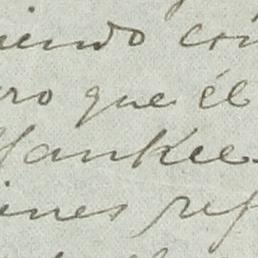 iendo con
ro que él
Yankee
ines ref